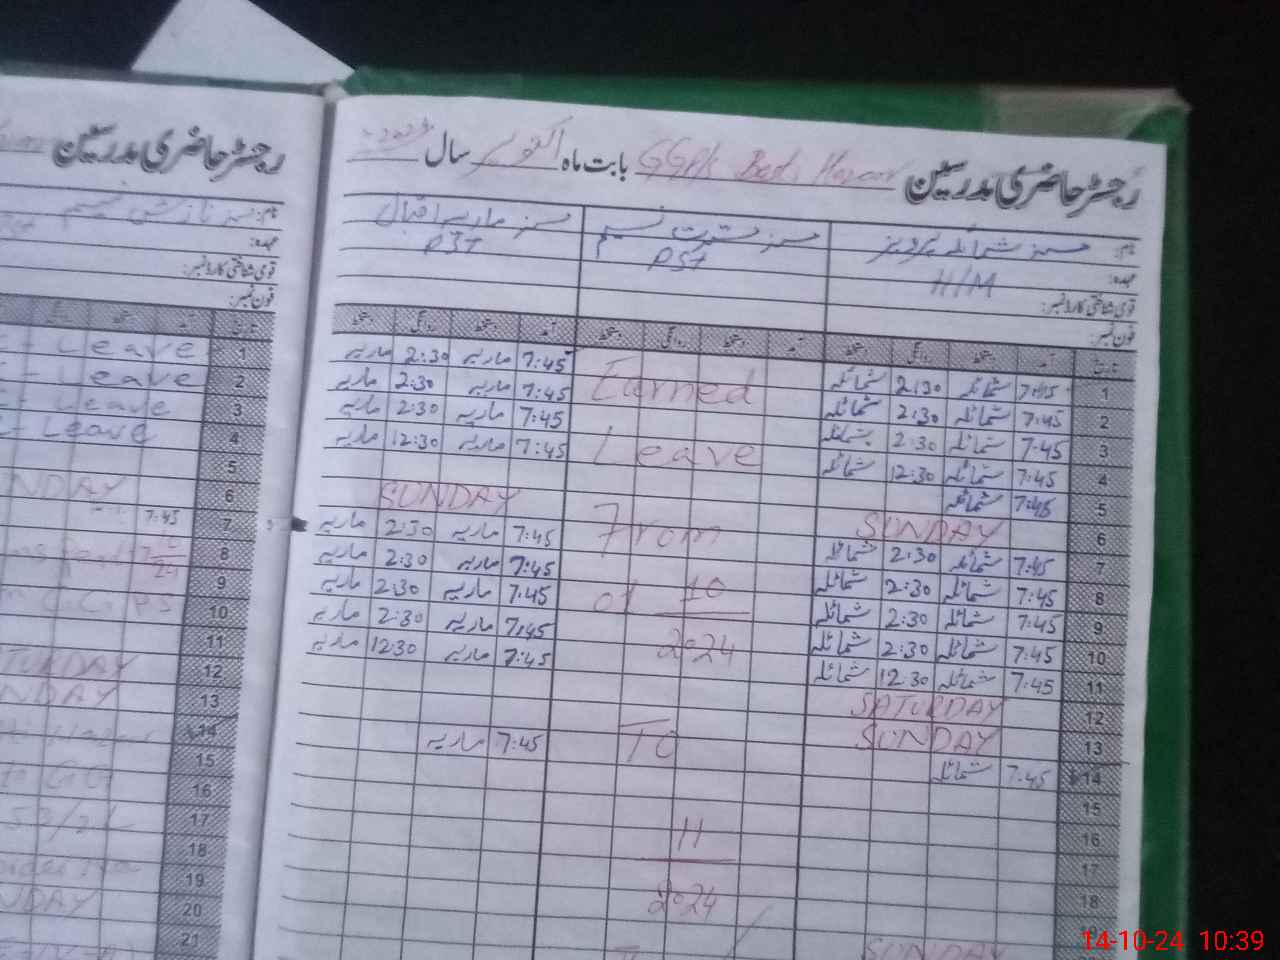 رجسٹر حاضری مدرسین GGP/S بابت ماہ اکتوبر سال 2024
نام: مسز شمائلہ پرویز مسز مسرت نسیم مسز ماریہ اقبال
عہدہ: H/M PST PST
قومی شناختی کارڈ نمبر:
فون نمبر:
تاریخ آمد دستخط روانگی دستخط آمد دستخط روانگی دستخط آمد دستخط روانگی دستخط
1 7:45 شمائلہ 2:30 شمائلہ Earned 7:45 ماریہ 2:30 ماریہ
2 7:45 شمائلہ 2:30 شمائلہ 7:45 ماریہ 2:30 ماریہ
3 7:45 شمائلہ 2:30 شمائلہ Leave 7:45 ماریہ 2:30 ماریہ
4 7:45 شمائلہ 12:30 شمائلہ 7:45 ماریہ 12:30 ماریہ
5 7:45 شمائلہ
6 SUNDAY From SUNDAY
7 7:45 شمائلہ 2:30 شمائلہ 7:45 ماریہ 2:30 ماریہ
8 7:45 شمائلہ 2:30 شمائلہ 01 10 7:45 ماریہ 2:30 ماریہ
9 7:45 شمائلہ 2:30 شمائلہ 7:45 ماریہ 2:30 ماریہ
10 7:45 شمائلہ 2:30 شمائلہ 2024 7:45 ماریہ 2:30 ماریہ
11 7:45 شمائلہ 12:30 شمائلہ 7:45 ماریہ 12:30 ماریہ
12 SATURDAY
13 SUNDAY To
14 7:45 شمائلہ 7:45 ماریہ
15
16 11
17
18 2024
SUNDAY
رجسٹر حاضری مدرسین
نام:
عہدہ:
قومی شناختی کارڈ نمبر:
فون نمبر:
تاریخ آمد دستخط روانگی
1 Leave
2 Leave
3 Leave
4 Leave
5
6 NDAY
7 7:45
8
9
10
11
12 TURDAY
13 NDAY
14
15
16
17
18
19
20 NDAY
21
14-10-24 10:39